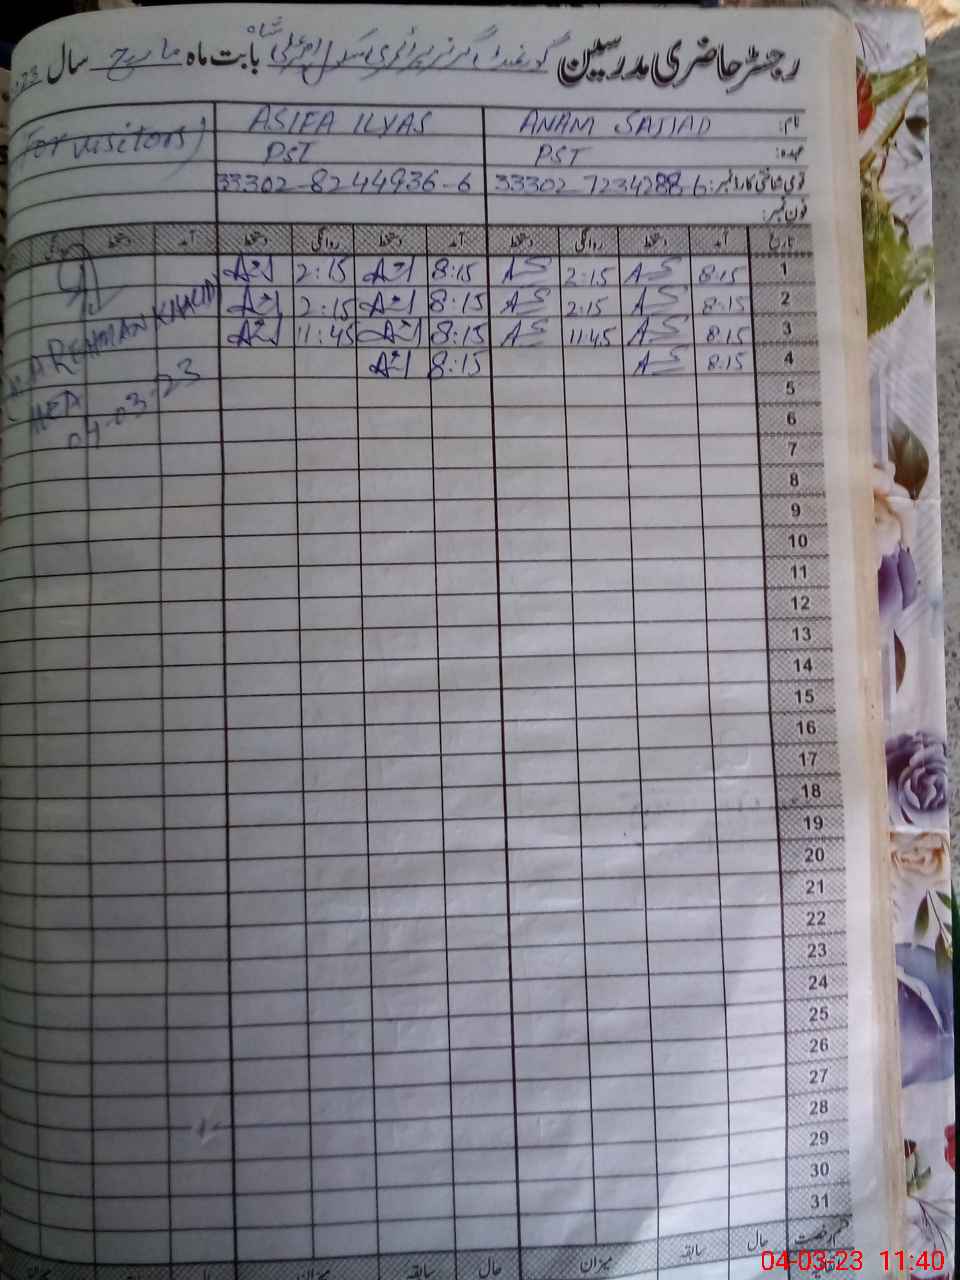 رجسٹر حاضری مدرسین گورنمنٹ گرلز پرائمری سکول بابت ماہ مارچ سال 23
نام: ANAM SAJJAD ASIFA ILYAS (For visitors)
عہدہ: PST PST
قومی شناختی کارڈ نمبر: 33302-7234288-6 33302-8244936-6
فون نمبر:
تاریخ آمد دستخط روانگی دستخط آمد دستخط روانگی دستخط آمد دستخط روانگی
1 8:15 AS 2:15 AS 8:15 2:15
2 8:15 AS 2:15 AS 8:15 2:15
3 8:15 AS 11:45 AS 8:15 11:45
4 8:15 AS 8:15
REHMAN KHALID
04-03-23
5
6
7
8
9
10
11
12
13
14
15
16
17
18
19
20
21
22
23
24
25
26
27
28
29
30
31
حال سابقہ میزان حال سابقہ میزان
04-03-23 11:40